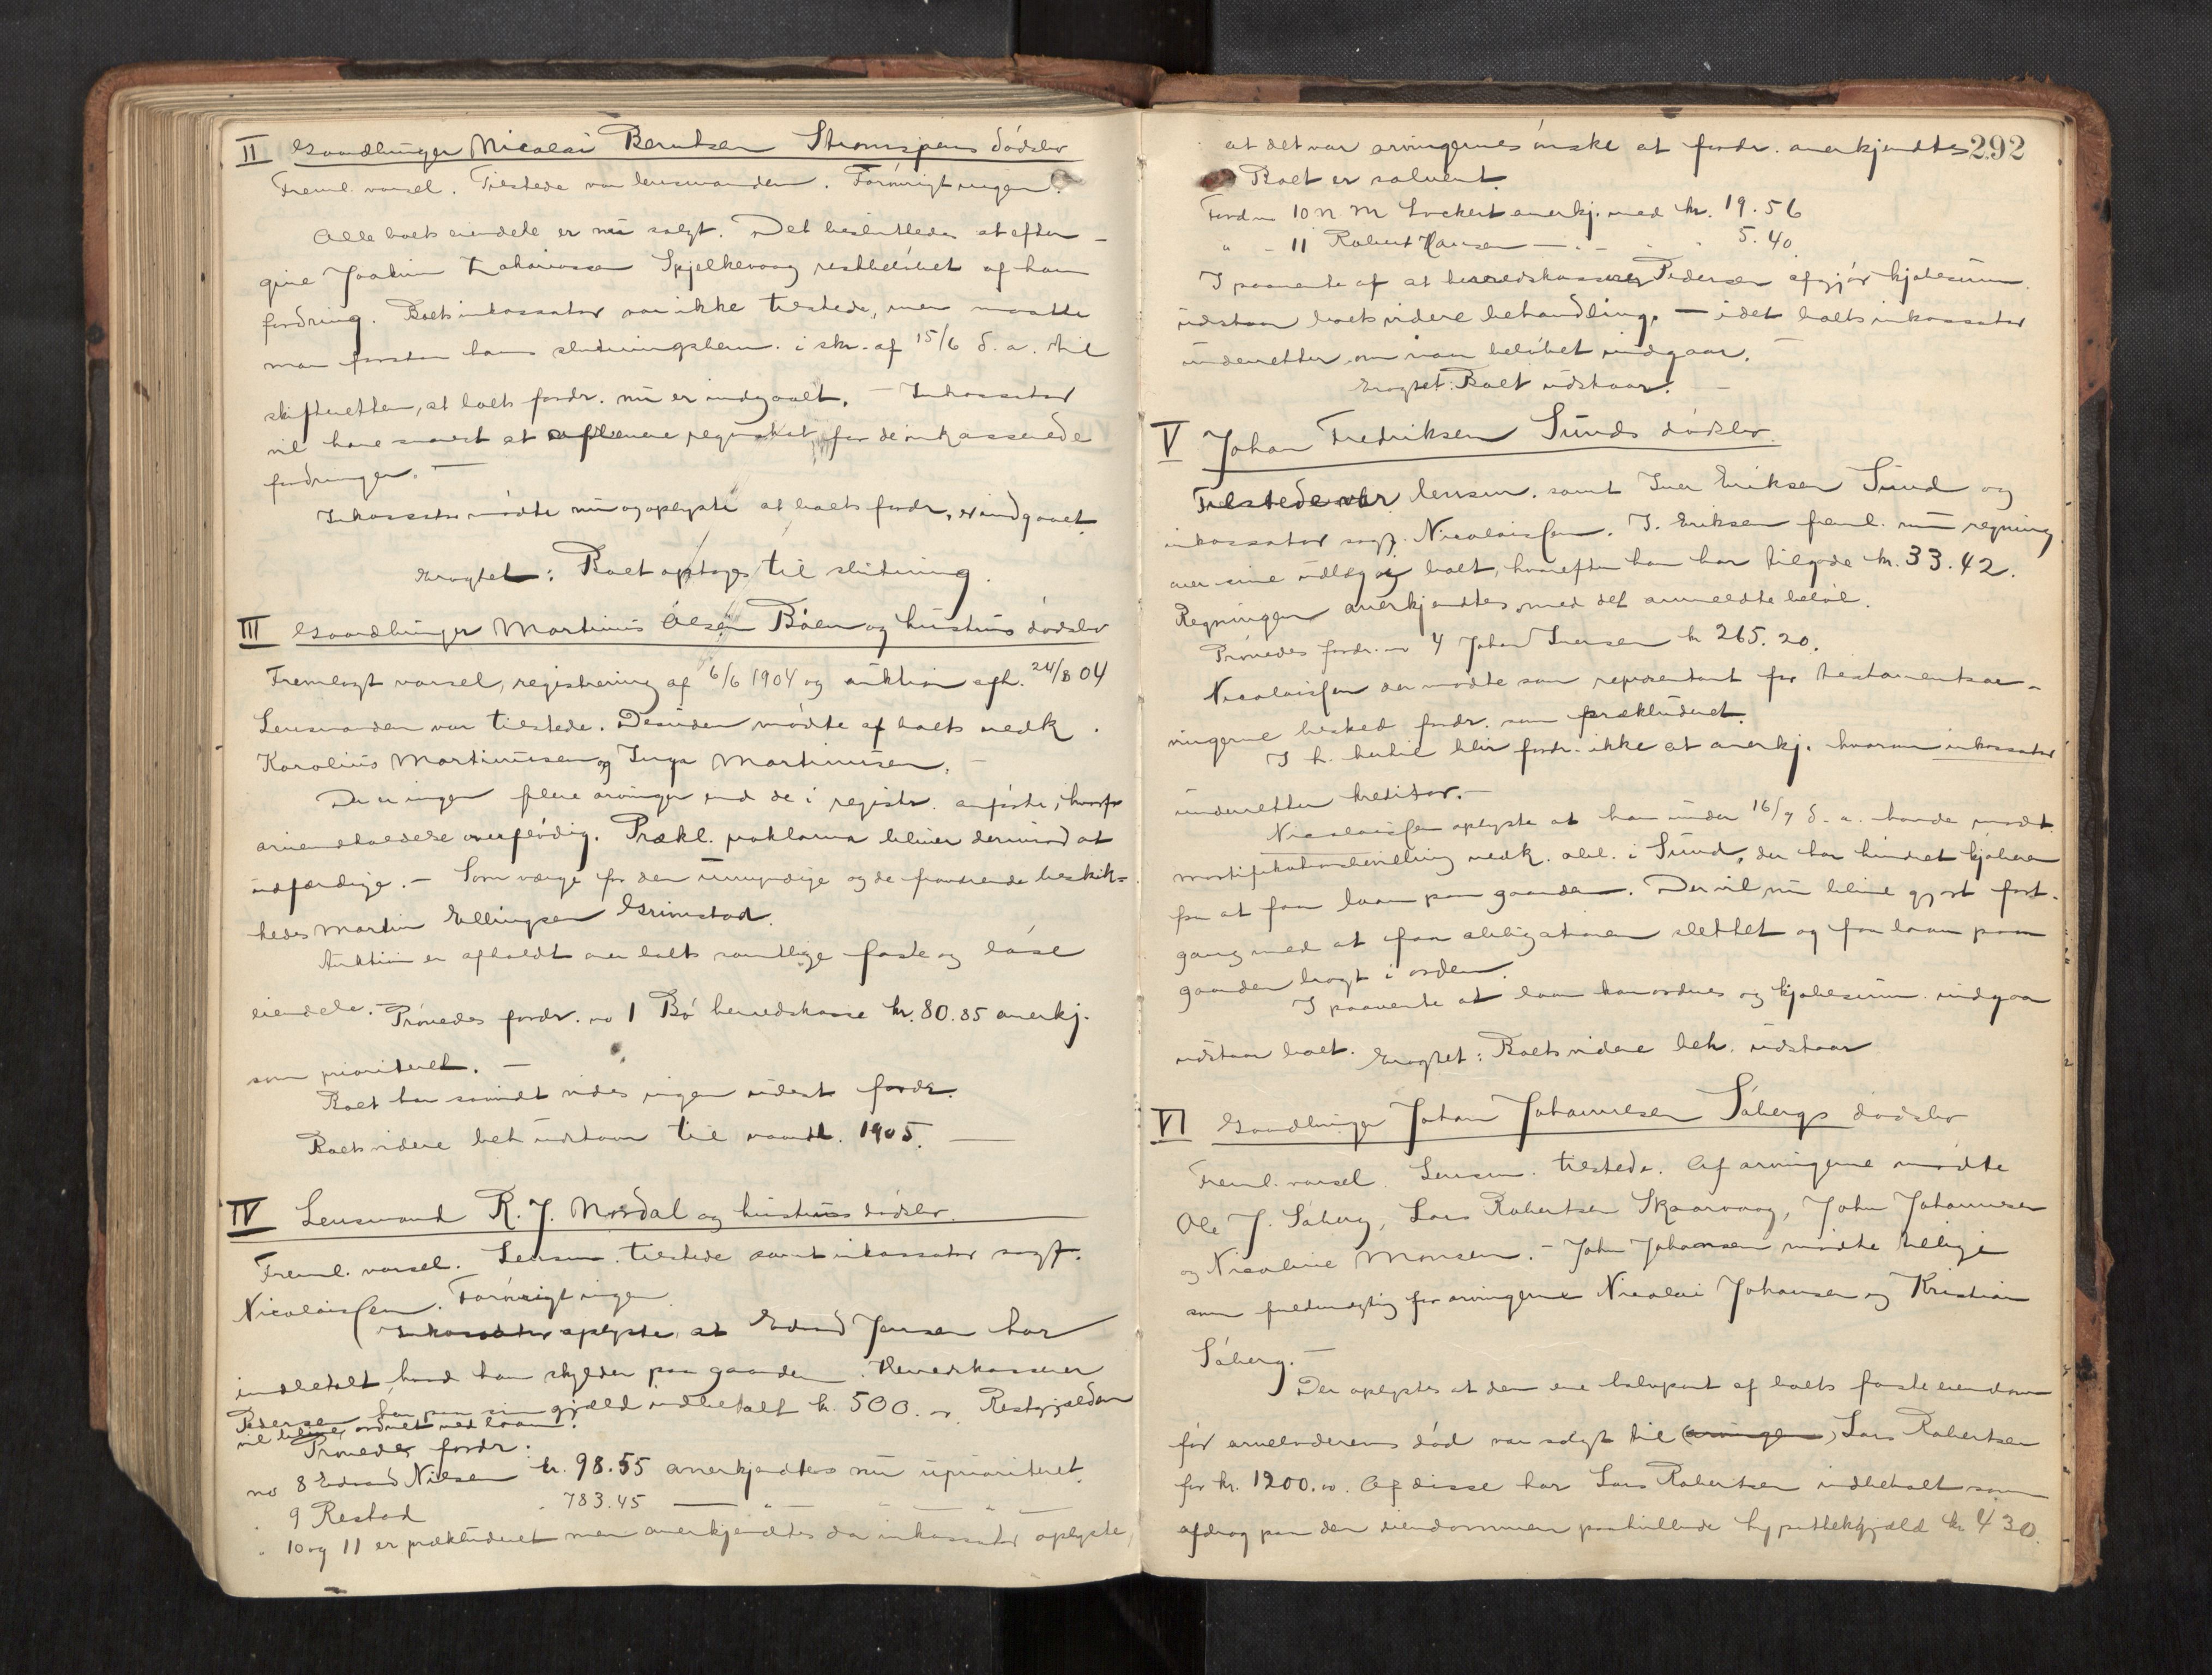 II Gaardbruger Nicolai Berntsen Strømsjøens dødsbo
Freml. varsel. Tilstede var lensmanden. Forøvrigt ingen.
Alle boets eiendele er nu solgt. Det besluttedes at efter-
give Joakim Zakariassen Spjelkevaag restbeløbet af hans
fordring. Boets inkassator var ikke tilstede, men maatte
man forstaa hans slutningsbem. i skr. af 15/6 d. a. til
skifteretten, at boets fordr. nu er indgaaet. – Inkassator
vil have snarest at aflevere regnskab for de inkasserede
fordringer. –
Inkassator mødte nu og oplyste at boets fordr. er indgaaet.
Eragtet: Boet optages til slutning.
III Gaardbruger Martinus Olsen Bøen og hustrus dødsbo
Fremlagt varsel, registrering af 6/6 1904 og auktion afh. 24/8 04
Lensmanden var tilstede. Desuden mødte af boets vedk.
Karolius Martinusen og Inga Martinusen. –
Der er ingen flere arvinger end de i registr. anførte, hvorfor
overflødig. Prækl. proklama bliver derimod at
udfærdige. – Som værge for den umyndige og de fraværende beskik-
kedes Martin Ellingsen Grimstad.
Auktion er afholdt over boets samtlige faste og løse
eiendele. – Prøvedes fordr. no 1 Bø herredskasse kr. 80.85 anerkj.
som prioriteret. –
Boet har saavidt vides ingen udest. fordr.
Boets videre beh. udstaar til vaart. 1905. –
IV Lensmand R. J. Nordal og hustrus dødsbo.
Freml. varsel. Lensm. tilstede samt inkassator sagf.
Nicolaissen. Forøvrigt ingen
Inkassator oplyste at Edvard Jensen har
indbetalt, hvad han skylder paa gaarden. Herredskasserer
Pedersen har paa sin gjæld indbetalt kr. 500. – Restgjælden
vil blive ordnet ved laan.
Prøvedes fordr.
no 8 Edvard Nilsen kr. 98.55 anerkjendtes nu uprioriteret.
" 9 Restad " 783.45 — " — " — " —
" 10 og 11 er prækluderet men anerkjendtes da inkassator oplyste,
292
at det var arvingernes ønske at fordr. anerkjendtes
Boet er solvent.
Fordr. no 10 N. M. Lockert anerkj. med kr. 19.56
" - 11 Robert Hansen — " — " " 5.40
I paavente af at herredskasserer Pedersen afgjør kjøbesum.
udstaar boets videre behandling. – idet boets inkassator
underretter om naar beløbet indgaar. –
Eragtet: Boet udstaar. –
V Johan Fredriksen Sunds dødsbo.
Tilstede var lensm. samt Iver Eriksen Sund og
inkassator sagf. Nicolaissen. I. Eriksen freml. nu regning
over sine udlæg og boet, hvorefter han har tilgode kr. 33.42.
Regningen anerkjendtes med det anmeldte beløb.
Prøvedes fordr. no 4 Johan Iversen kr 265.20.
Nicolaissen der mødte som repræsentant for testamentsar-
vingerne besked fordr. som prækluderet.
I h. hertil blir fordr. ikke at anerkj. hvorom inkassator
underretter kreditor. –
Nicolaissen oplyste at han under 16/9 d. a. havde modt.
mortifikationsbevilling vedk. obl. i Sund, der har hindret kjøberen
fra at faa laan paa gaarden. Der vil nu blive gjort fort-
gang med at faa obligationen slettet og faa laan paa
gaarden bragt i orden.
I paavente at laan kan ordnes og kjøbesum. indgaa
udstaar boet. Eragtet: Boets videre beh. udstaar
VI Gaardbruger Johan Johannesen Søbergs dødsbo
Freml. varsel. Lensm. tilstede. Af arvingerne mødte
Ole J. Søberg, Lars Robertsen Skaarvaag, John Johannesen
og Nicoline Monsen. – John Johansen mødte tillige
som fuldmægtig for arvingerne Nicolai Johansen og Kristian
Søberg. –
Der oplystes at den ene halvpart af boets faste eiendom
før arveladerens død var solgt til (arvingen) Lars Robertsen
for kr. 1200.00. Af disse har Lars Robertsen indbetalt som
afdrag paa den eiendommen paahvilende hypothekgjæld kr 430.